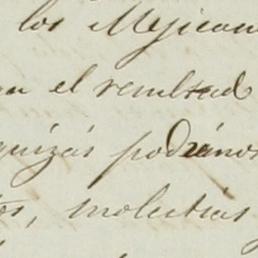 los Mejican
el resultado
quizás podrámos
os, molestias